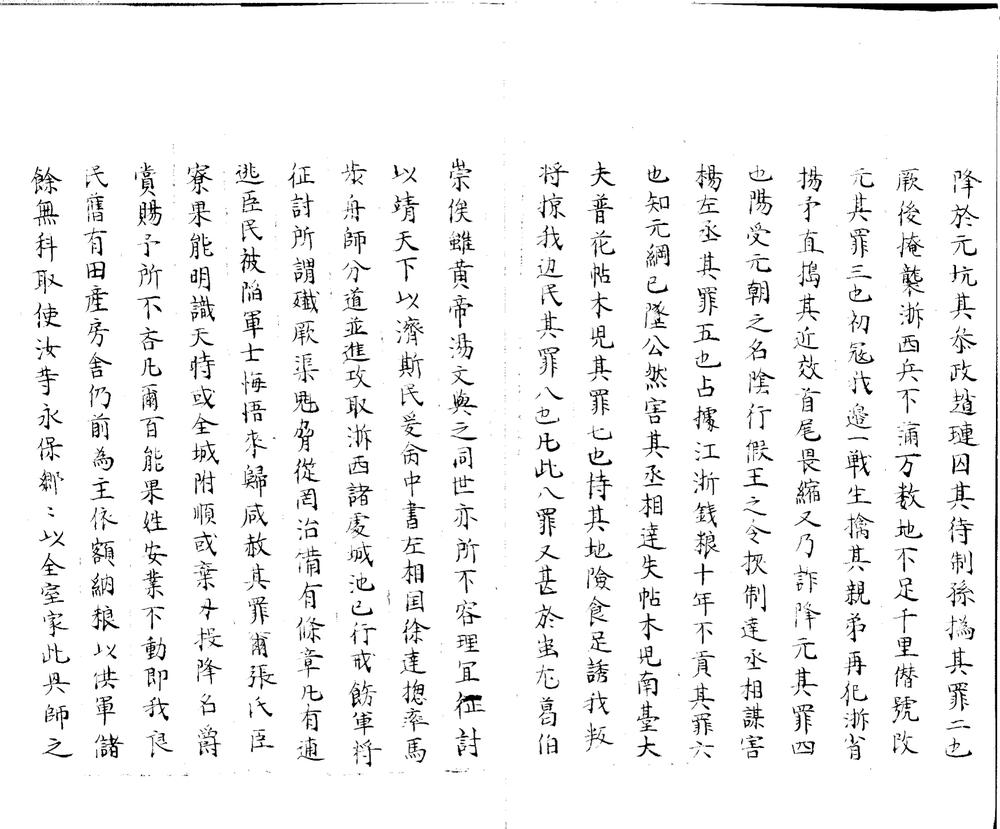 降於元坑其叅政趙璉囚其待制孫撝其罪二也
厥後掩襲浙西兵不滿万数地不足千里僣號改
元其罪三也初冦我邉一戰生擒其親弟再犯浙省
揚矛直搗其近效首尾畏縮又乃詐降元其罪四
也陽受元朝之名陰行假王之令挾制達丞相謀害
楊左丞其罪五也占據江浙錢粮十年不貢其罪六
也知元綱已墜公然害其丞相達失帖木児南臺大
夫普花帖木児其罪七也恃其地險食足誘我叛
将掠我边民其罪八也凡此八罪又甚於蚩尤葛伯
崇侯雖黄帝湯文與之同世亦所不容理冝征討
以靖天下以濟斯民爰命中書左相国徐達揔率馬
步舟師分道並進攻取浙西諸處城池已行戒飭軍将
征討所謂殲厥渠魁脅從罔治備有條章凡有逋
逃臣民被陷軍士悔悟来歸咸赦其罪爾張氏臣
寮果能明識天時或全城附順或棄刃投降名爵
賞賜予所不吝凡爾百能果姓安業不動即我良
民舊有田產房舎仍前為主依額納粮以供軍儲
餘無科取使汝等永保鄉〻以全室家此興師之